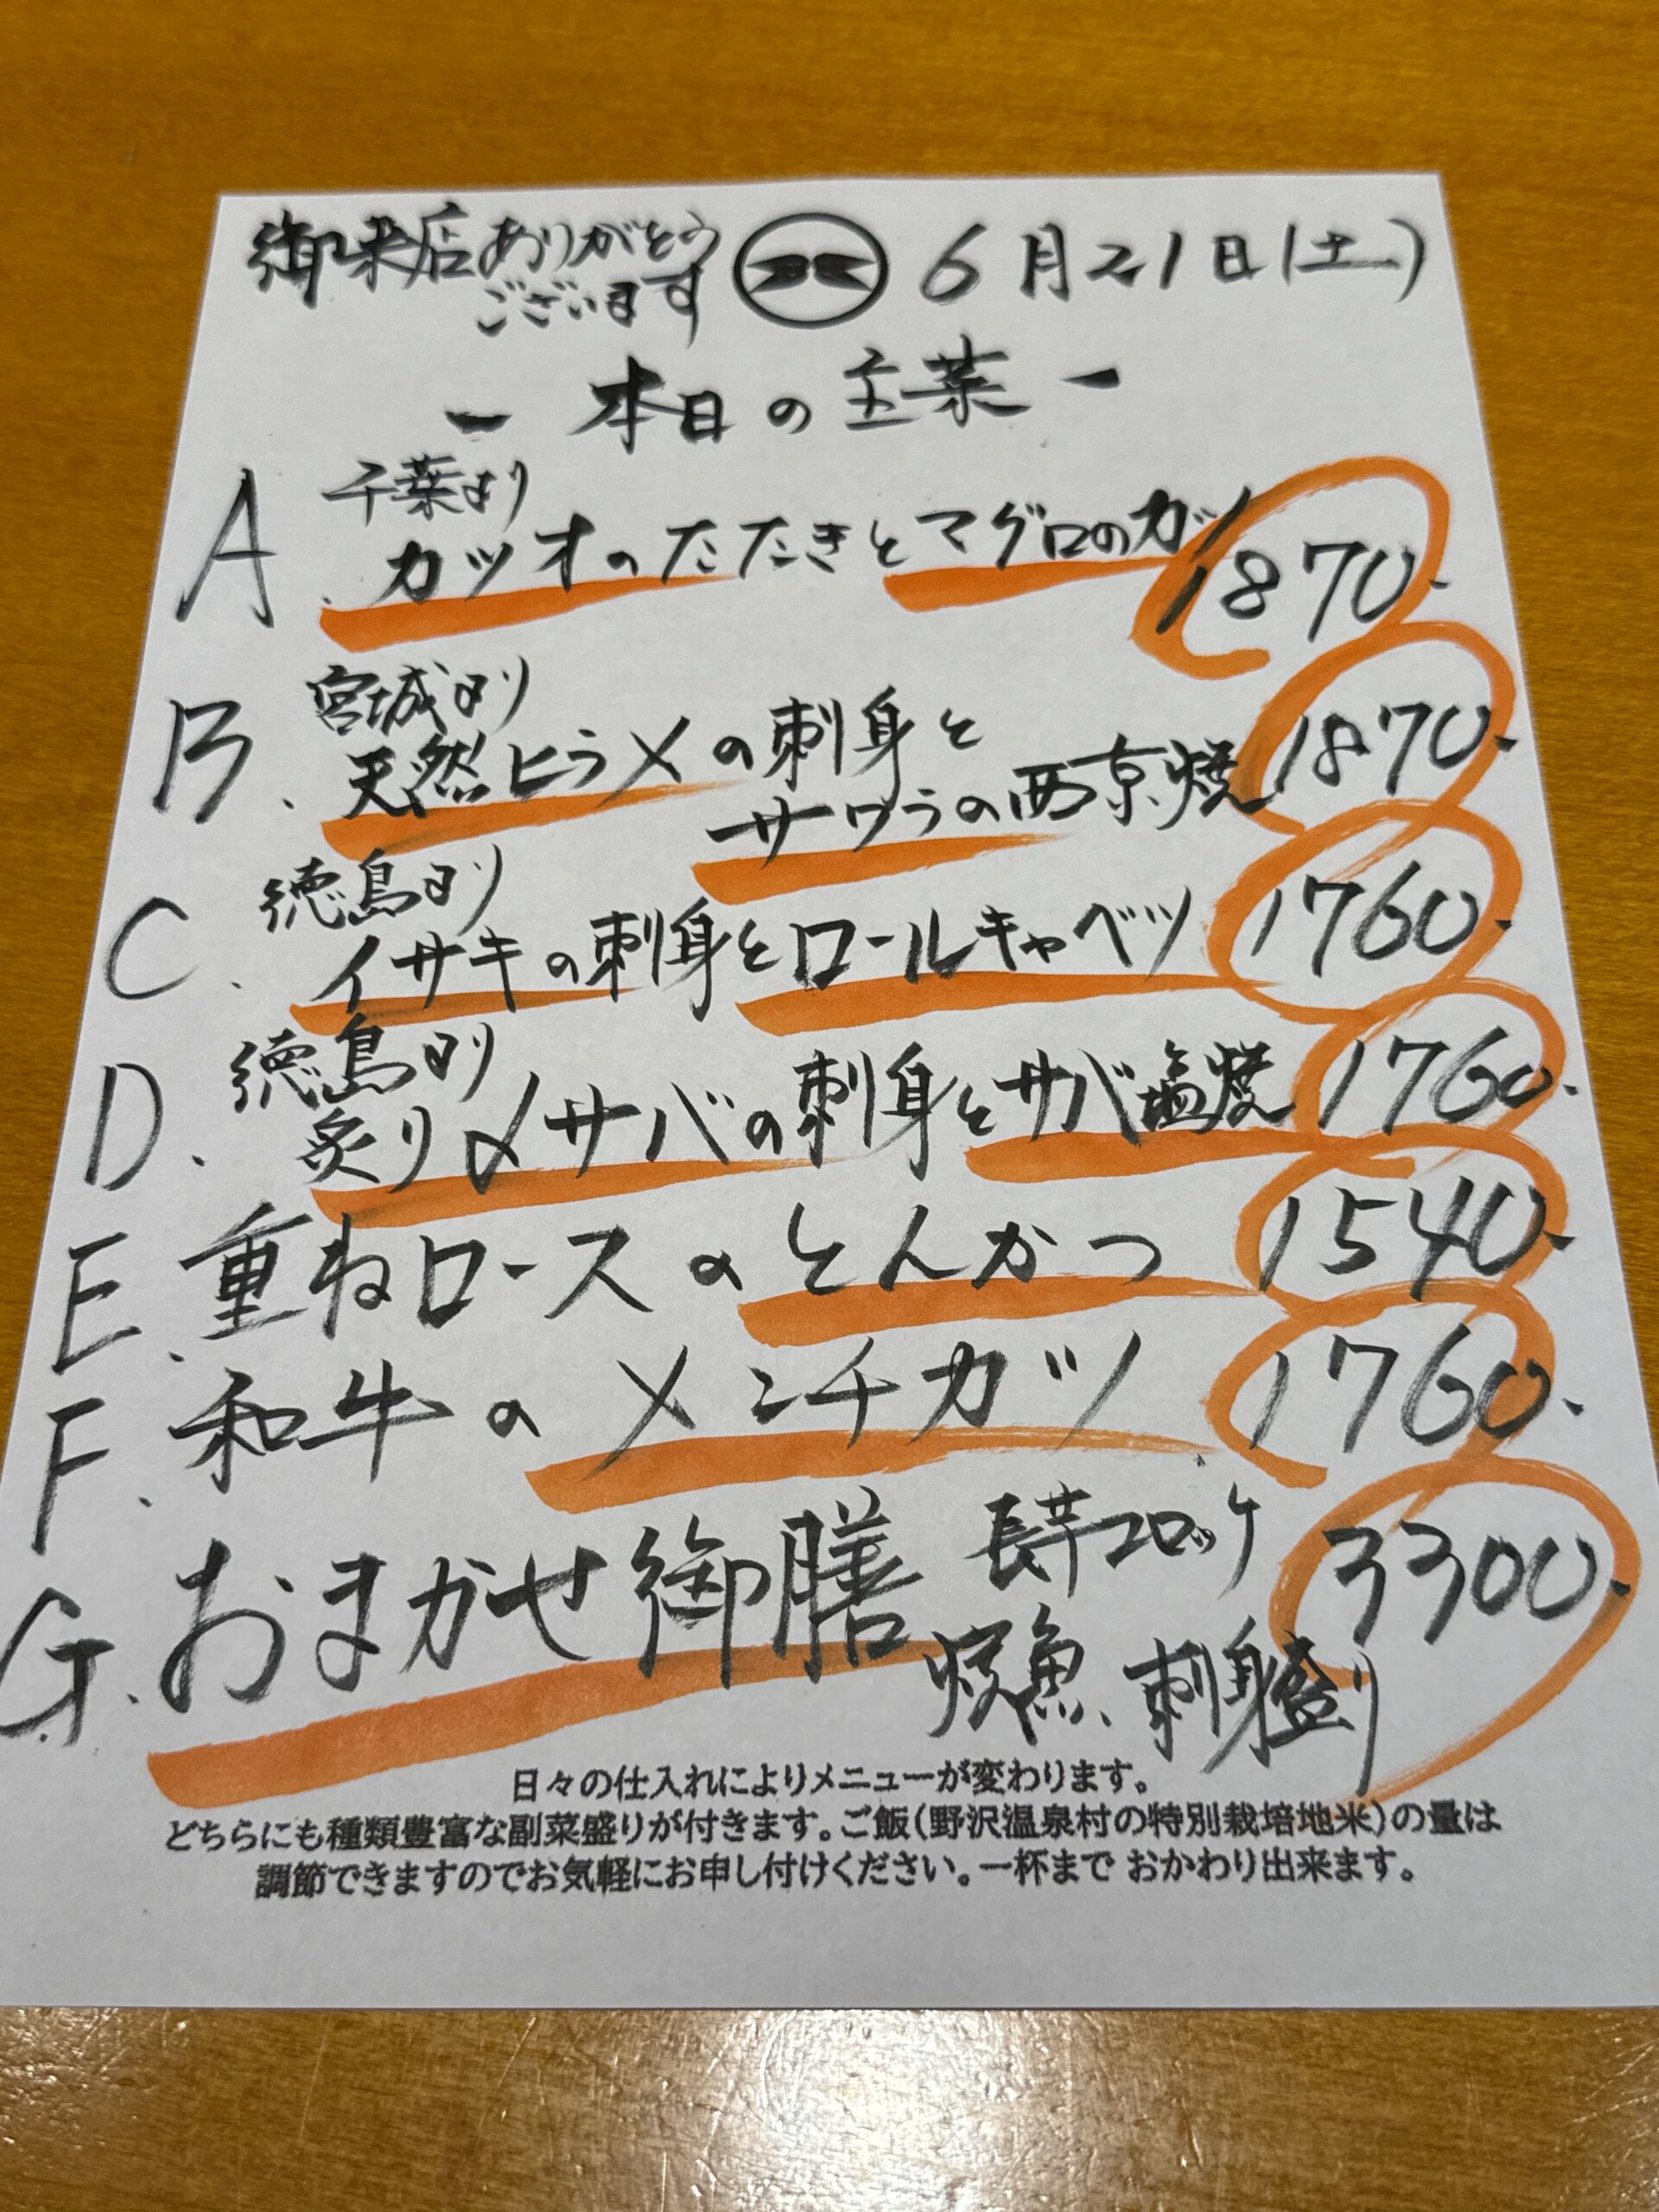 御来店ありがとう
ございます
6月21日(土)
ー 本日の主菜 ー
A. 千葉より
カツオのたたきとマグロのカツ 1870.
B. 宮城より
天然ヒラメの刺身と
サワラの西京焼 1870.
C. 徳島より
イサキの刺身とロールキャベツ 1760.
D. 徳島より
炙り〆サバの刺身とサバ塩焼 1760.
E. 重ねロースのとんかつ 1540.
F. 和牛のメンチカツ 1760.
G. おまかせ御膳 長芋コロッケ 3300.
焼魚、刺身盛り
日々の仕入れによりメニューが変わります。
どちらにも種類豊富な副菜盛りが付きます。ご飯(野沢温泉村の特別栽培地米)の量は
調節できますのでお気軽にお申し付けください。一杯まで おかわり出来ます。